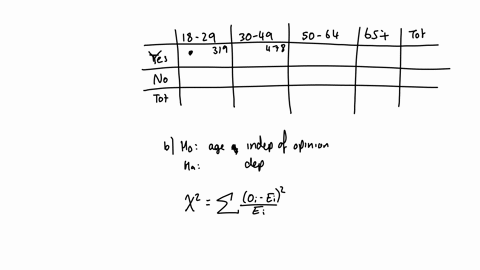 18-29 30-49 50-64 65+ Tot
Yes 319 478
No
Tot
b) H0: age indep of opinion
Ha: dep
χ² = ∑ (Oi - Ei)² / Ei